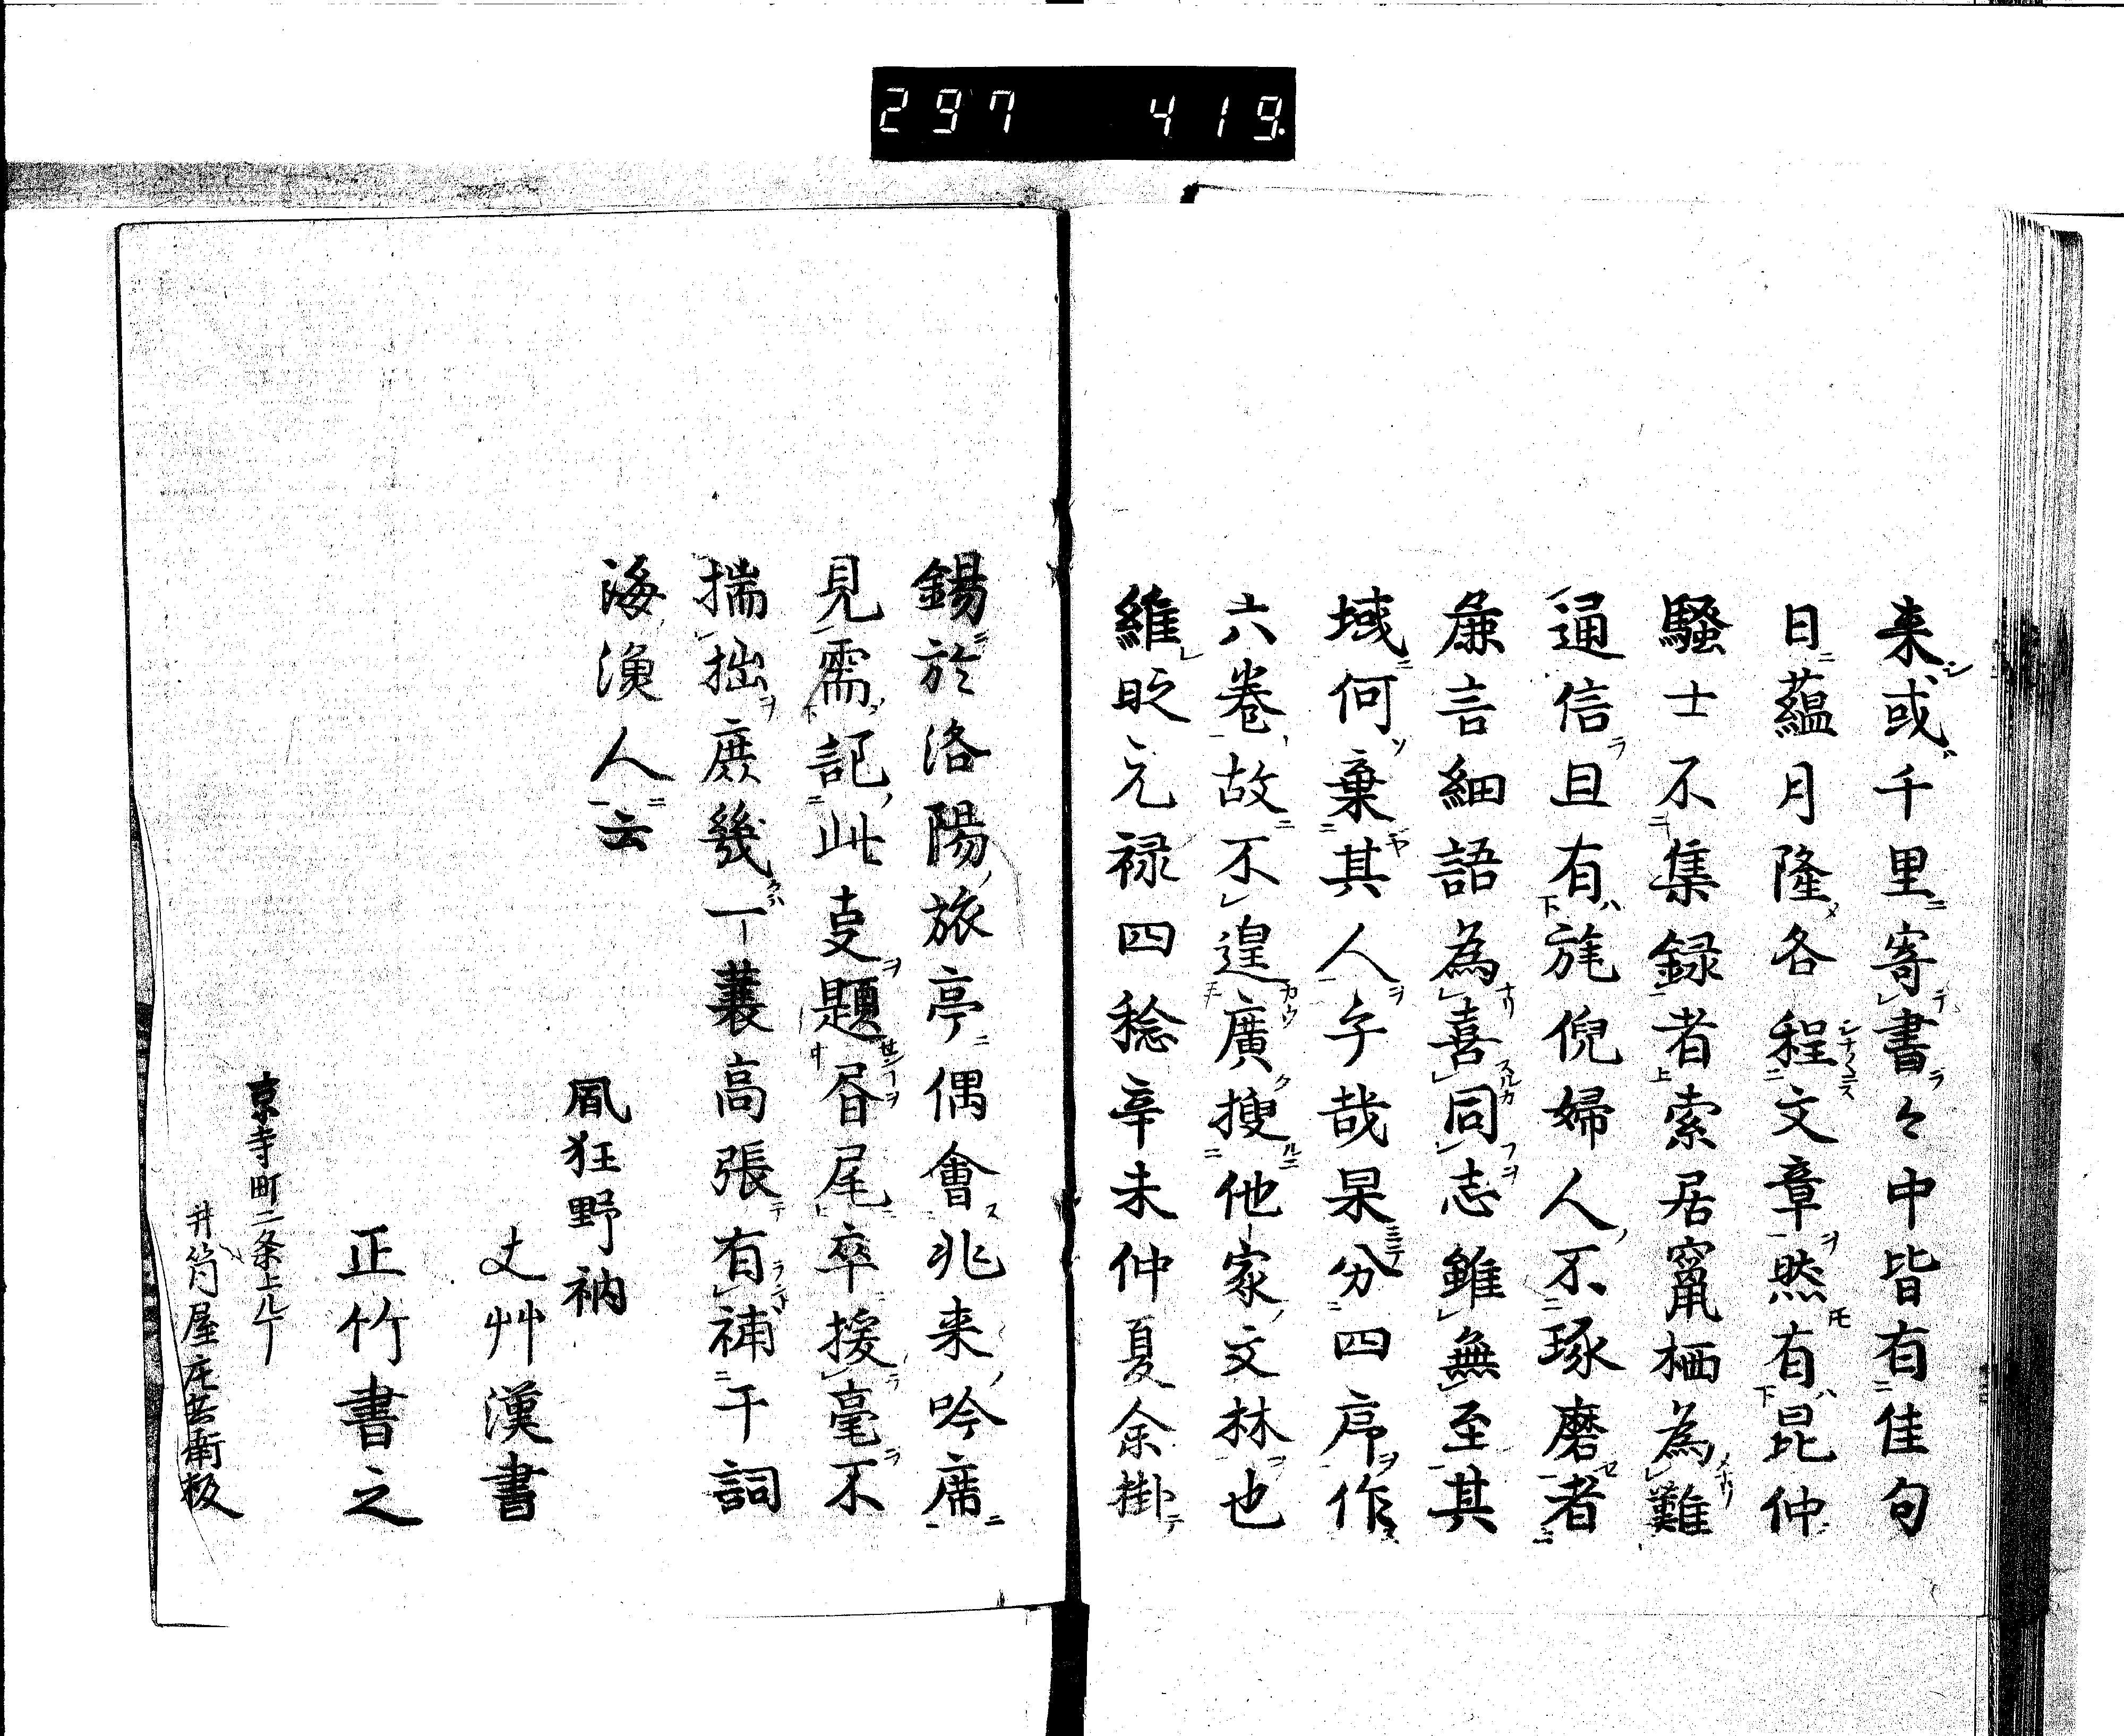 297 419
来或千里寄書々中皆有佳句
日蘊月隆各程文章然有昆仲
騒士不集録者索居竄栖為難
通信且有旄倪婦人不琢磨者
麁言細語為喜同志雖無至其
域何棄其人乎哉杲分四序作
六巻故不遑廣捜他家文林也
維時元禄四稔辛未仲夏余掛
錫於洛陽旅亭偶會兆来吟席
見需記此㕝題㫺尾卒援毫不
揣拙庶幾一蓑高張有補干詞
海漁人云
風狂野衲
丈艸漢書
正竹書之
京寺町二条上ル丁
井筒屋庄兵衛板